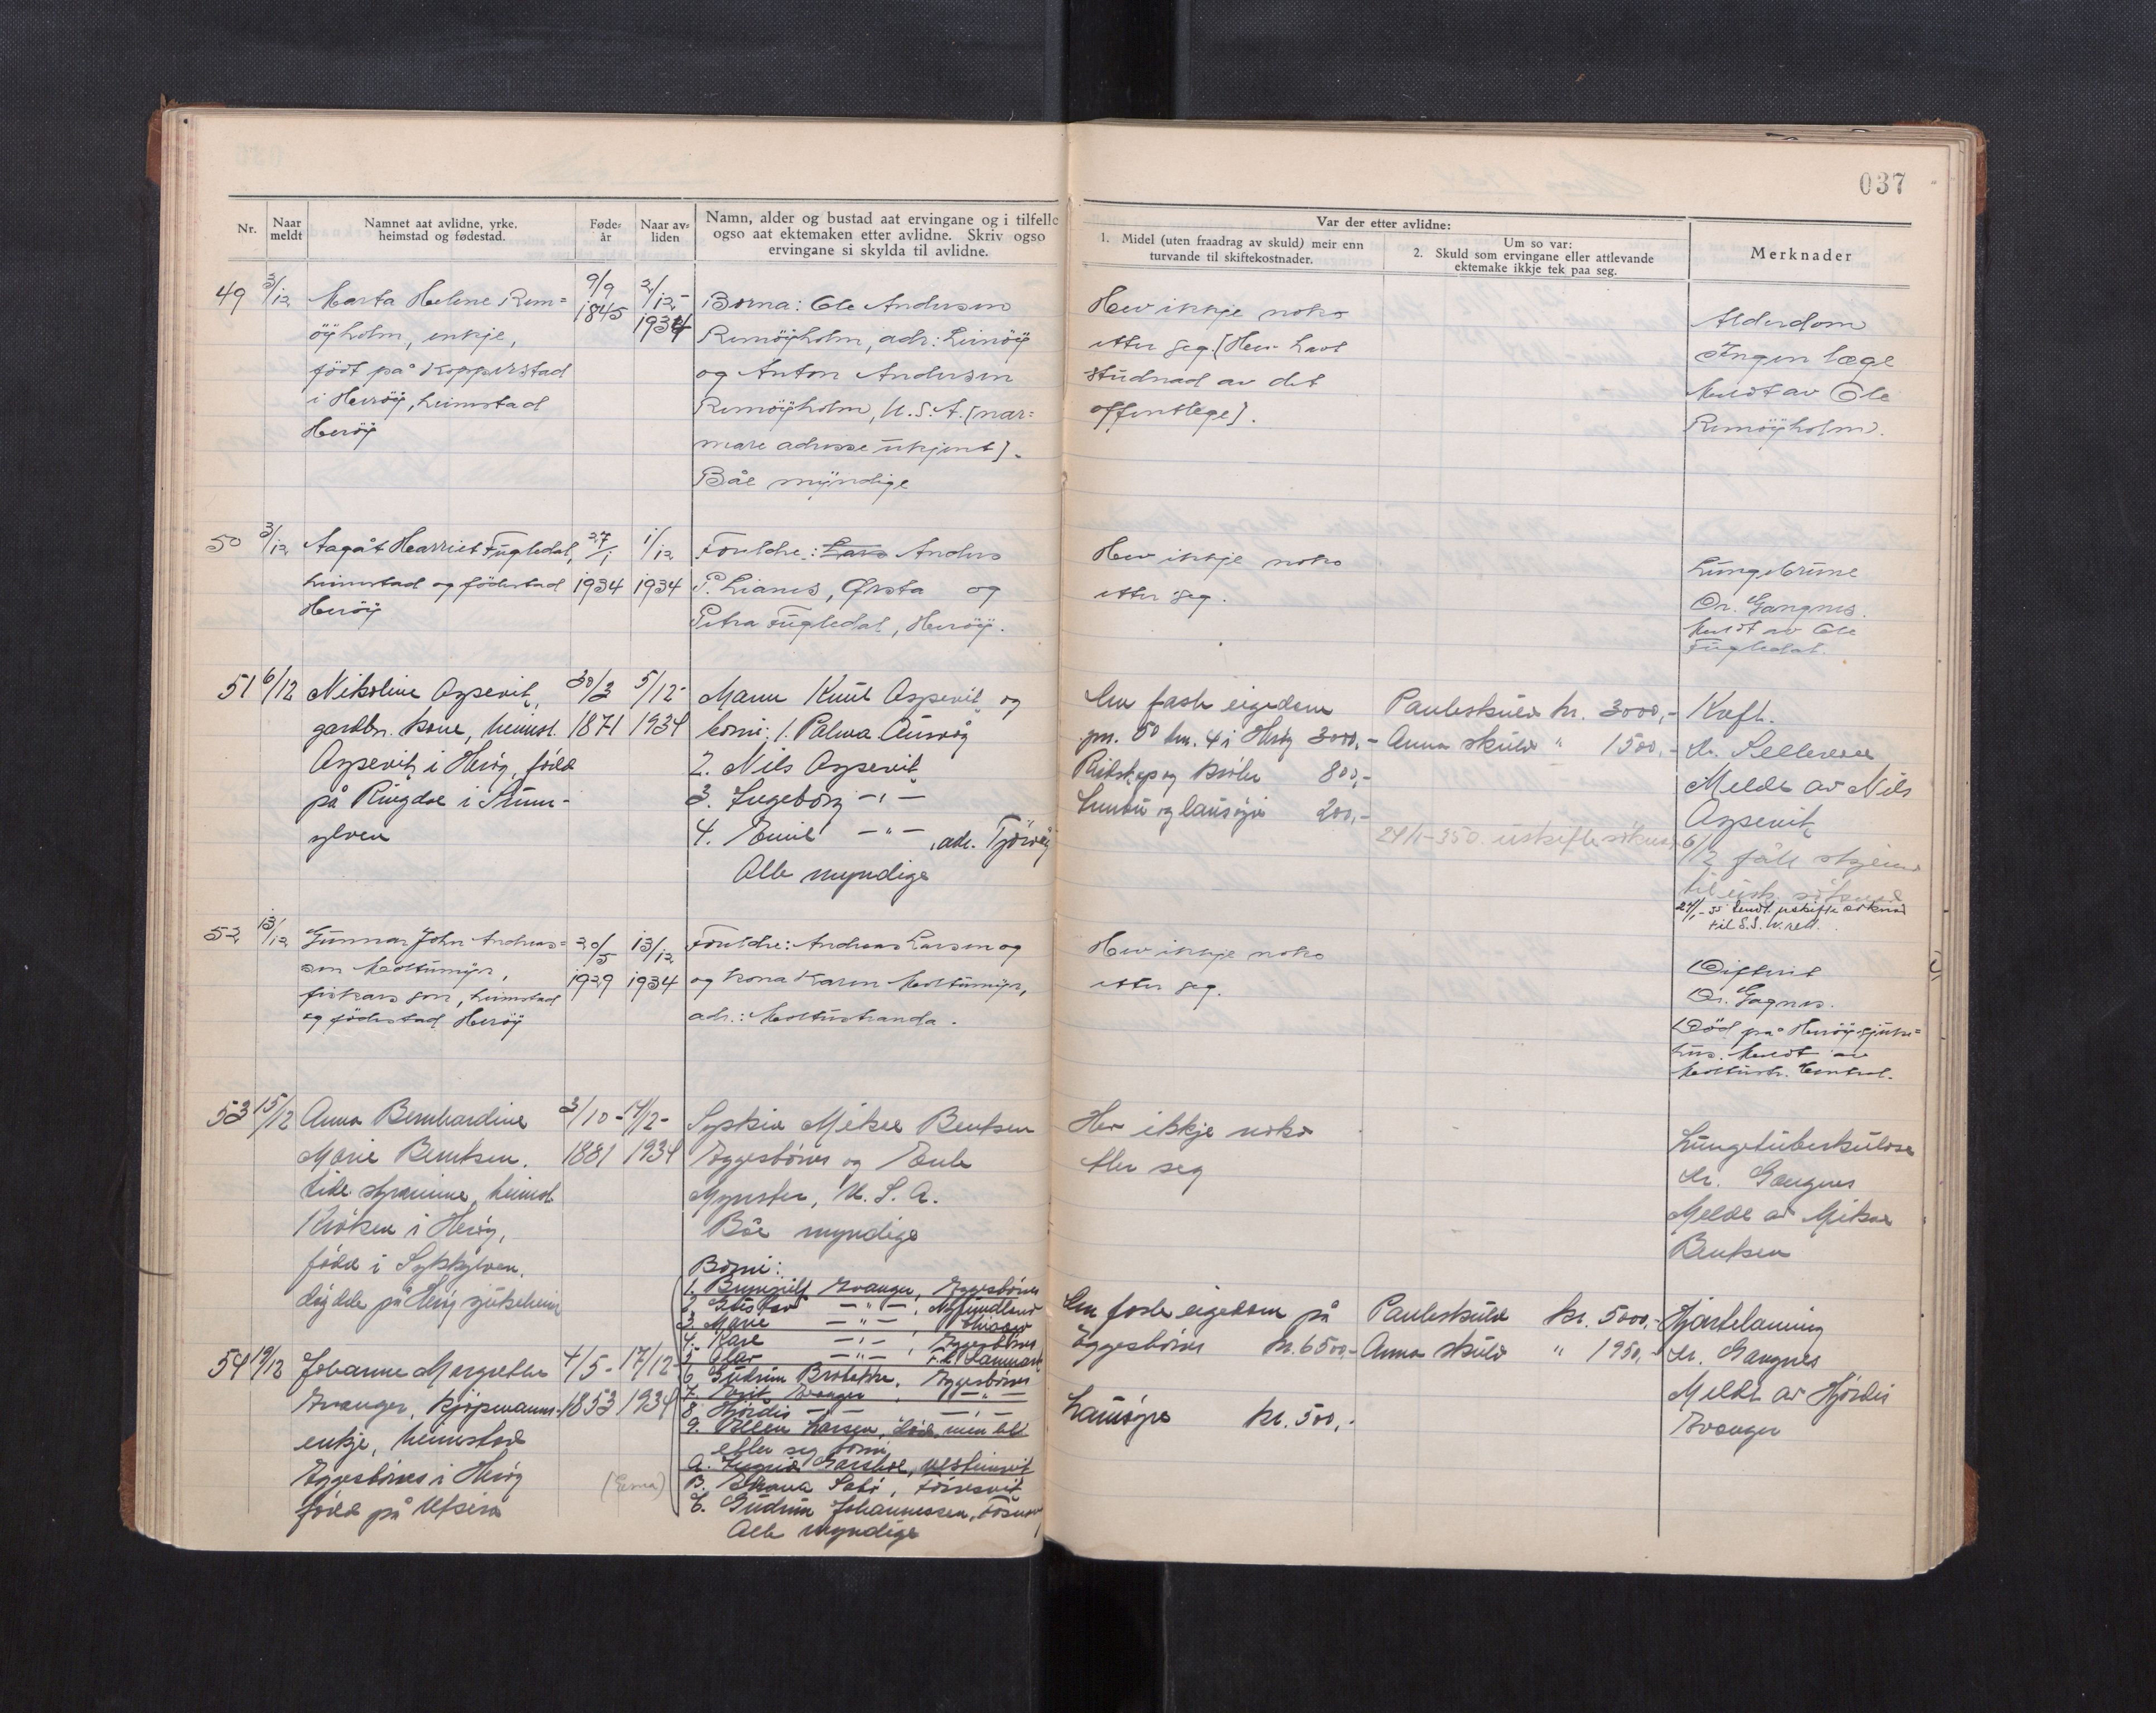 037
Nr.
Naar meldt
Namnet aat avlidne, yrke, heimstad og fødestad.
Føde-år
Naar av-liden
Namn, alder og bustad aat ervingane og i tilfelle
ogso aat ektemaken etter avlidne. Skriv ogso
ervingane si skylda til avlidne.
Var der etter avlidne:
1. Midel (uten fraadrag av skuld) meir enn
turvande til skiftekostnader.
Um so var:
2. Skuld som ervingane eller attlevande
ektemake ikkje tek paa seg.
Merknader
49 3/12 Marta Helene Rem=
øyholm, enkje,
født på Kopperstad
i Herøy, heimstad
Herøy
9/9
1845
2/12-
1934
Borna: Ole Andersen
Remøyholm, adr.: Leinøy
og Anton Andersen
Remøyholm, U.S.A. [nær=
mare adresse ukjent].
Båe myndige
Hev ikkje noko
etter seg. [Hev havt
studnad av det
offentlege].
Alderdom
Ingen læge
Meldt av Ole
Remøyholm.
50 3/12 Aagåt Harriet Fugledal,
heimstad og fødestad
Herøy
27/1
1934
1/12
1934
Foreldre: Lars Anders
P. Lianes, Ørsta og
Petra Fugledal, Herøy.
Hev ikkje noko
etter seg.
Lungebrune
Dr. Gangnes.
Meldt av Ole
Fugledal.
51 6/12 Nikoline Aspevik,
gardbr. kone, heimst.
Aspevik i Herøy, född
på Ringdal i Sunn-
ylven
30/3
1871
5/12-
1934
Mann Knut Aspevik og
borni: 1. Palma Aurvåg
2. Nils Aspevik
3. Ingeborg —"—
4. Emil —"— , adr. Tjørvåg
Alle myndige
Ein fast eigedom
gm. 50 bm. 4 i Herøy 3000,-
Reidskap og krøter 800,-
Innbu og lausøyre 200,-
Panteskuld kr. 3000,-
Anna skuld " 1500,-
24/1-350. uskifte søknad
Kreft.
dr. Sellevold
Meldt av Nils
Aspevik
6/12 fått skjema
til usk. søknad
24/1-35 Sendt uskifte søknad
til S.S. h.rett.
52 13/12 Gunnar John Andreas=
sen Moltumyr,
fiskars son, heimstad
og fødestad Herøy
20/5
1929
13/12
1934
Foreldre: Andreas Larsen og
og kona Karen Moltumyr,
adr.: Moltustranda.
Hev ikkje noko
etter seg.
Difterit
Dr. Gagnes.
Död på Herøy sjuke=
hus. Meldt av
Moltustr. Central.
53 15/12 Anna Bernhardine
Marie Bentsen.
tidl. styrarinne, heimst.
Kroken i Herøy,
född i Sykkylven.
döydde på Herøy sjukeheim
3/10-
1881
14/12-
1934
Syskin Mikal Bentsen
Eggesbönes og Emle
Mynster, U.S.A.
Båe myndige
Hev ikkje noko
etter seg
Lungetuberkulose
dr. Gangnes
Meldt av Mikal
Bentsen
54 19/12 Johanne Margrethe
Evanger, kjöpmanns-
enkje, heimstad
Eggesbönes i Herøy
född på Utsira
4/5-
1853
17/12-
1934
Borni:
1. Brynjulf Evanger, Eggesbönes
2. Gustav —"—, Nyfundland
3. Marie —"—,
4. Kåre —"—, Eggesbönes
5. Olav —"—,
6. Gudrun Brobakke, Eggesbönes
7. Erit Evanger —"—
8. Hjördis —"— —"—
9. Ellen Larsen, död, men let
etter seg born
A. Ingrid Garshol, Vestimvik
B. Sætr, Törvesvik
C. Gudrun Johannessen, Fosnavåg
Alle myndige
(Erna)
Ein fast eigedom på
Eggesbönes kr. 6500,-
Lausöyre kr. 500,-
Panteskuld kr. 5000,-
Anna skuld " 1950,-
Hjartelaming
dr. Gangnes
Meldt av Hjördis
Evanger